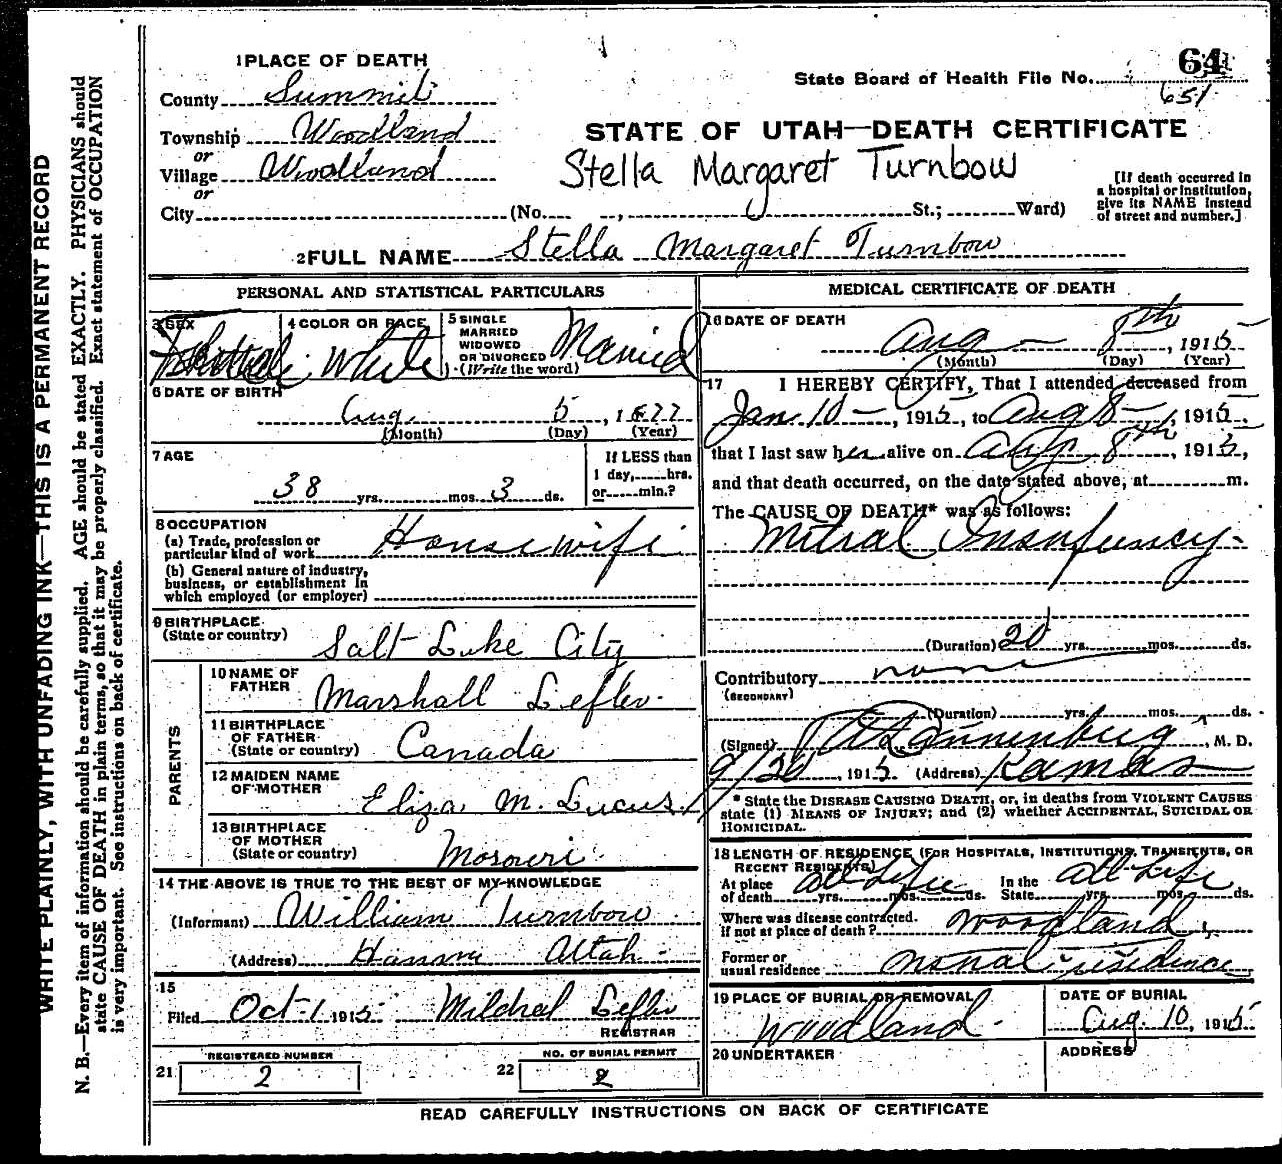 WRITE PLAINLY, WITH UNFADING INK—THIS IS A PERMANENT RECORD
N. B.—Every item of information should be carefully supplied. AGE should be stated EXACTLY. PHYSICIANS should
state CAUSE OF DEATH in plain terms, so that it may be properly classified. Exact statement of OCCUPATION
is very important. See instructions on back of certificate.
1 PLACE OF DEATH
County Summit
Township Woodland
or
Village Woodland
or
City (No. , St.; Ward)
State Board of Health File No. 64
651
STATE OF UTAH—DEATH CERTIFICATE
Stella Margaret Turnbow
[If death occurred in
a hospital or institution,
give its NAME instead
of street and number.]
2 FULL NAME Stella Margaret Turnbow
PERSONAL AND STATISTICAL PARTICULARS
3 SEX
4 COLOR OR RACE White
5 SINGLE
MARRIED
WIDOWED
OR DIVORCED
(Write the word) Married
6 DATE OF BIRTH
Aug. 5, 1877
(Month) (Day) (Year)
7 AGE
38 yrs. mos. 3 ds.
If LESS than
1 day, hrs.
or min.?
8 OCCUPATION
(a) Trade, profession or
particular kind of work Housewife
(b) General nature of industry,
business, or establishment in
which employed (or employer)
9 BIRTHPLACE
(State or country) Salt Lake City
PARENTS
10 NAME OF
FATHER Marshall Lefler
11 BIRTHPLACE
OF FATHER
(State or country) Canada
12 MAIDEN NAME
OF MOTHER Eliza M. Lucus
13 BIRTHPLACE
OF MOTHER
(State or country) Mosouri
14 THE ABOVE IS TRUE TO THE BEST OF MY KNOWLEDGE
(Informant) William Turnbow
(Address) Hanna Utah
15
Filed Oct-1 1915 Mildred Lefler
REGISTRAR
REGISTERED NUMBER
21 2
NO. OF BURIAL PERMIT
22 2
MEDICAL CERTIFICATE OF DEATH
16 DATE OF DEATH
Aug 8th, 1915
(Month) (Day) (Year)
17 I HEREBY CERTIFY, That I attended deceased from
Jan. 10—, 1915, to Aug 8—, 1915
that I last saw her alive on Aug 8th, 1915,
and that death occurred, on the date stated above, at m.
The CAUSE OF DEATH* was as follows:
Mitral Insufuncy
(Duration) 20 yrs. mos. ds.
Contributory none
(SECONDARY)
(Duration) yrs. mos. ds.
(Signed) , M. D.
9/20, 1915 (Address) Kamas
* State the DISEASE CAUSING DEATH, or, in deaths from VIOLENT CAUSES
state (1) MEANS OF INJURY; and (2) whether ACCIDENTAL, SUICIDAL OR
HOMICIDAL.
18 LENGTH OF RESIDENCE (FOR HOSPITALS, INSTITUTIONS, TRANSIENTS, OR
RECENT RESIDENTS)
At place
of death All Life yrs. mos. ds. In the
State All Life yrs. mos. ds.
Where was disease contracted.
If not at place of death? Woodland
Former or
usual residence residence
19 PLACE OF BURIAL OR REMOVAL
Woodland
DATE OF BURIAL
Aug. 10, 1915
20 UNDERTAKER
ADDRESS
READ CAREFULLY INSTRUCTIONS ON BACK OF CERTIFICATE